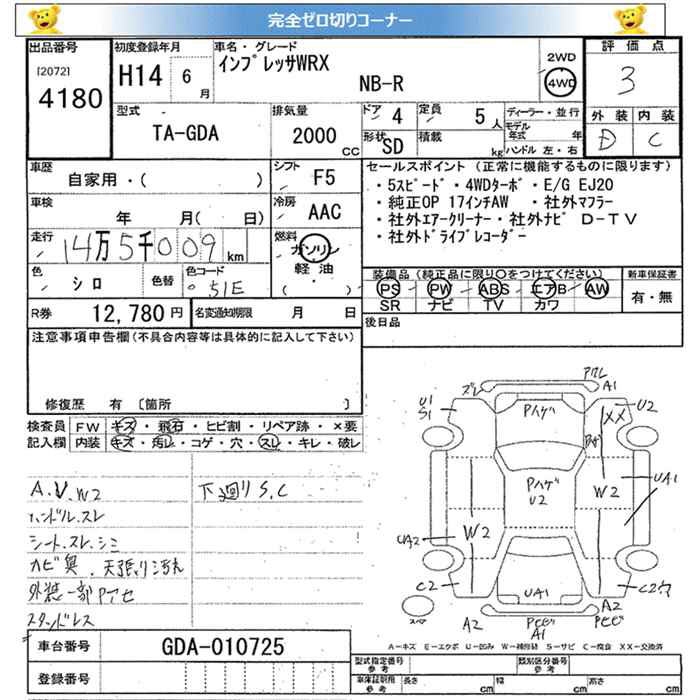 完全ゼロ切りコーナー
出品番号
[2072]
4180
初度登録年月
H14 6月
車名・グレード
インプレッサWRX
NB-R
2WD
4WD
評価点
3
外装 内装
D C
型式
TA-GDA
排気量
2000 CC
ドア 4
形状 SD
定員 5人
積載 kg
ディーラー・並行
モデル年式 年
ハンドル 左・右
車歴
自家用・( )
シフト F5
車検
年 月( 日)
冷房 AAC
走行 14万5千009 km
燃料 ガソリン
軽油
( )
色 シロ 色替 色コード 51E
R券 12,780円 名変通知期限 月 日
セールスポイント(正常に機能するものに限ります)
・5スピード・4WDターボ・E/G EJ20
・純正OP 17インチAW ・社外マフラー
・社外エアークリーナー・社外ナビ D-TV
・社外ドライブレコーダー
装備品(純正品に限り○をつけてください)
PS PW ABS エアB AW
SR ナビ TV カワ
新車保証書
有・無
後日品
注意事項申告欄(不具合内容等は具体的に記入して下さい)
修復歴 有 〔箇所 〕
検査員記入欄
FW キズ・飛石・ヒビ割・リペア跡・×要
内装 キズ・汚レ・コゲ・穴・スレ・キレ・破レ
A.U.W2
ハンドル.スレ
シート.スレ.シミ
カビ臭.天張り汚れ
外装一部Pアセ
スタンドレス
下廻りS.C
ズレ
Pワレ
A1
U1
S1
Pハゲ
XX
U2
Pハゲ
U2
W2
UA1
W2
UA2
C2
UA1
C2
A2
A2
Pヒビ
A1
Pヒビ
スペア
A-キズ E-エクボ U-凹み W-補修跡 S-サビ C-腐食 XX-交換済
車台番号 GDA-010725
登録番号
型式指定番号 参考
類別区分番号 参考
車庫証明用 参考
長さ cm 幅 cm 高さ cm